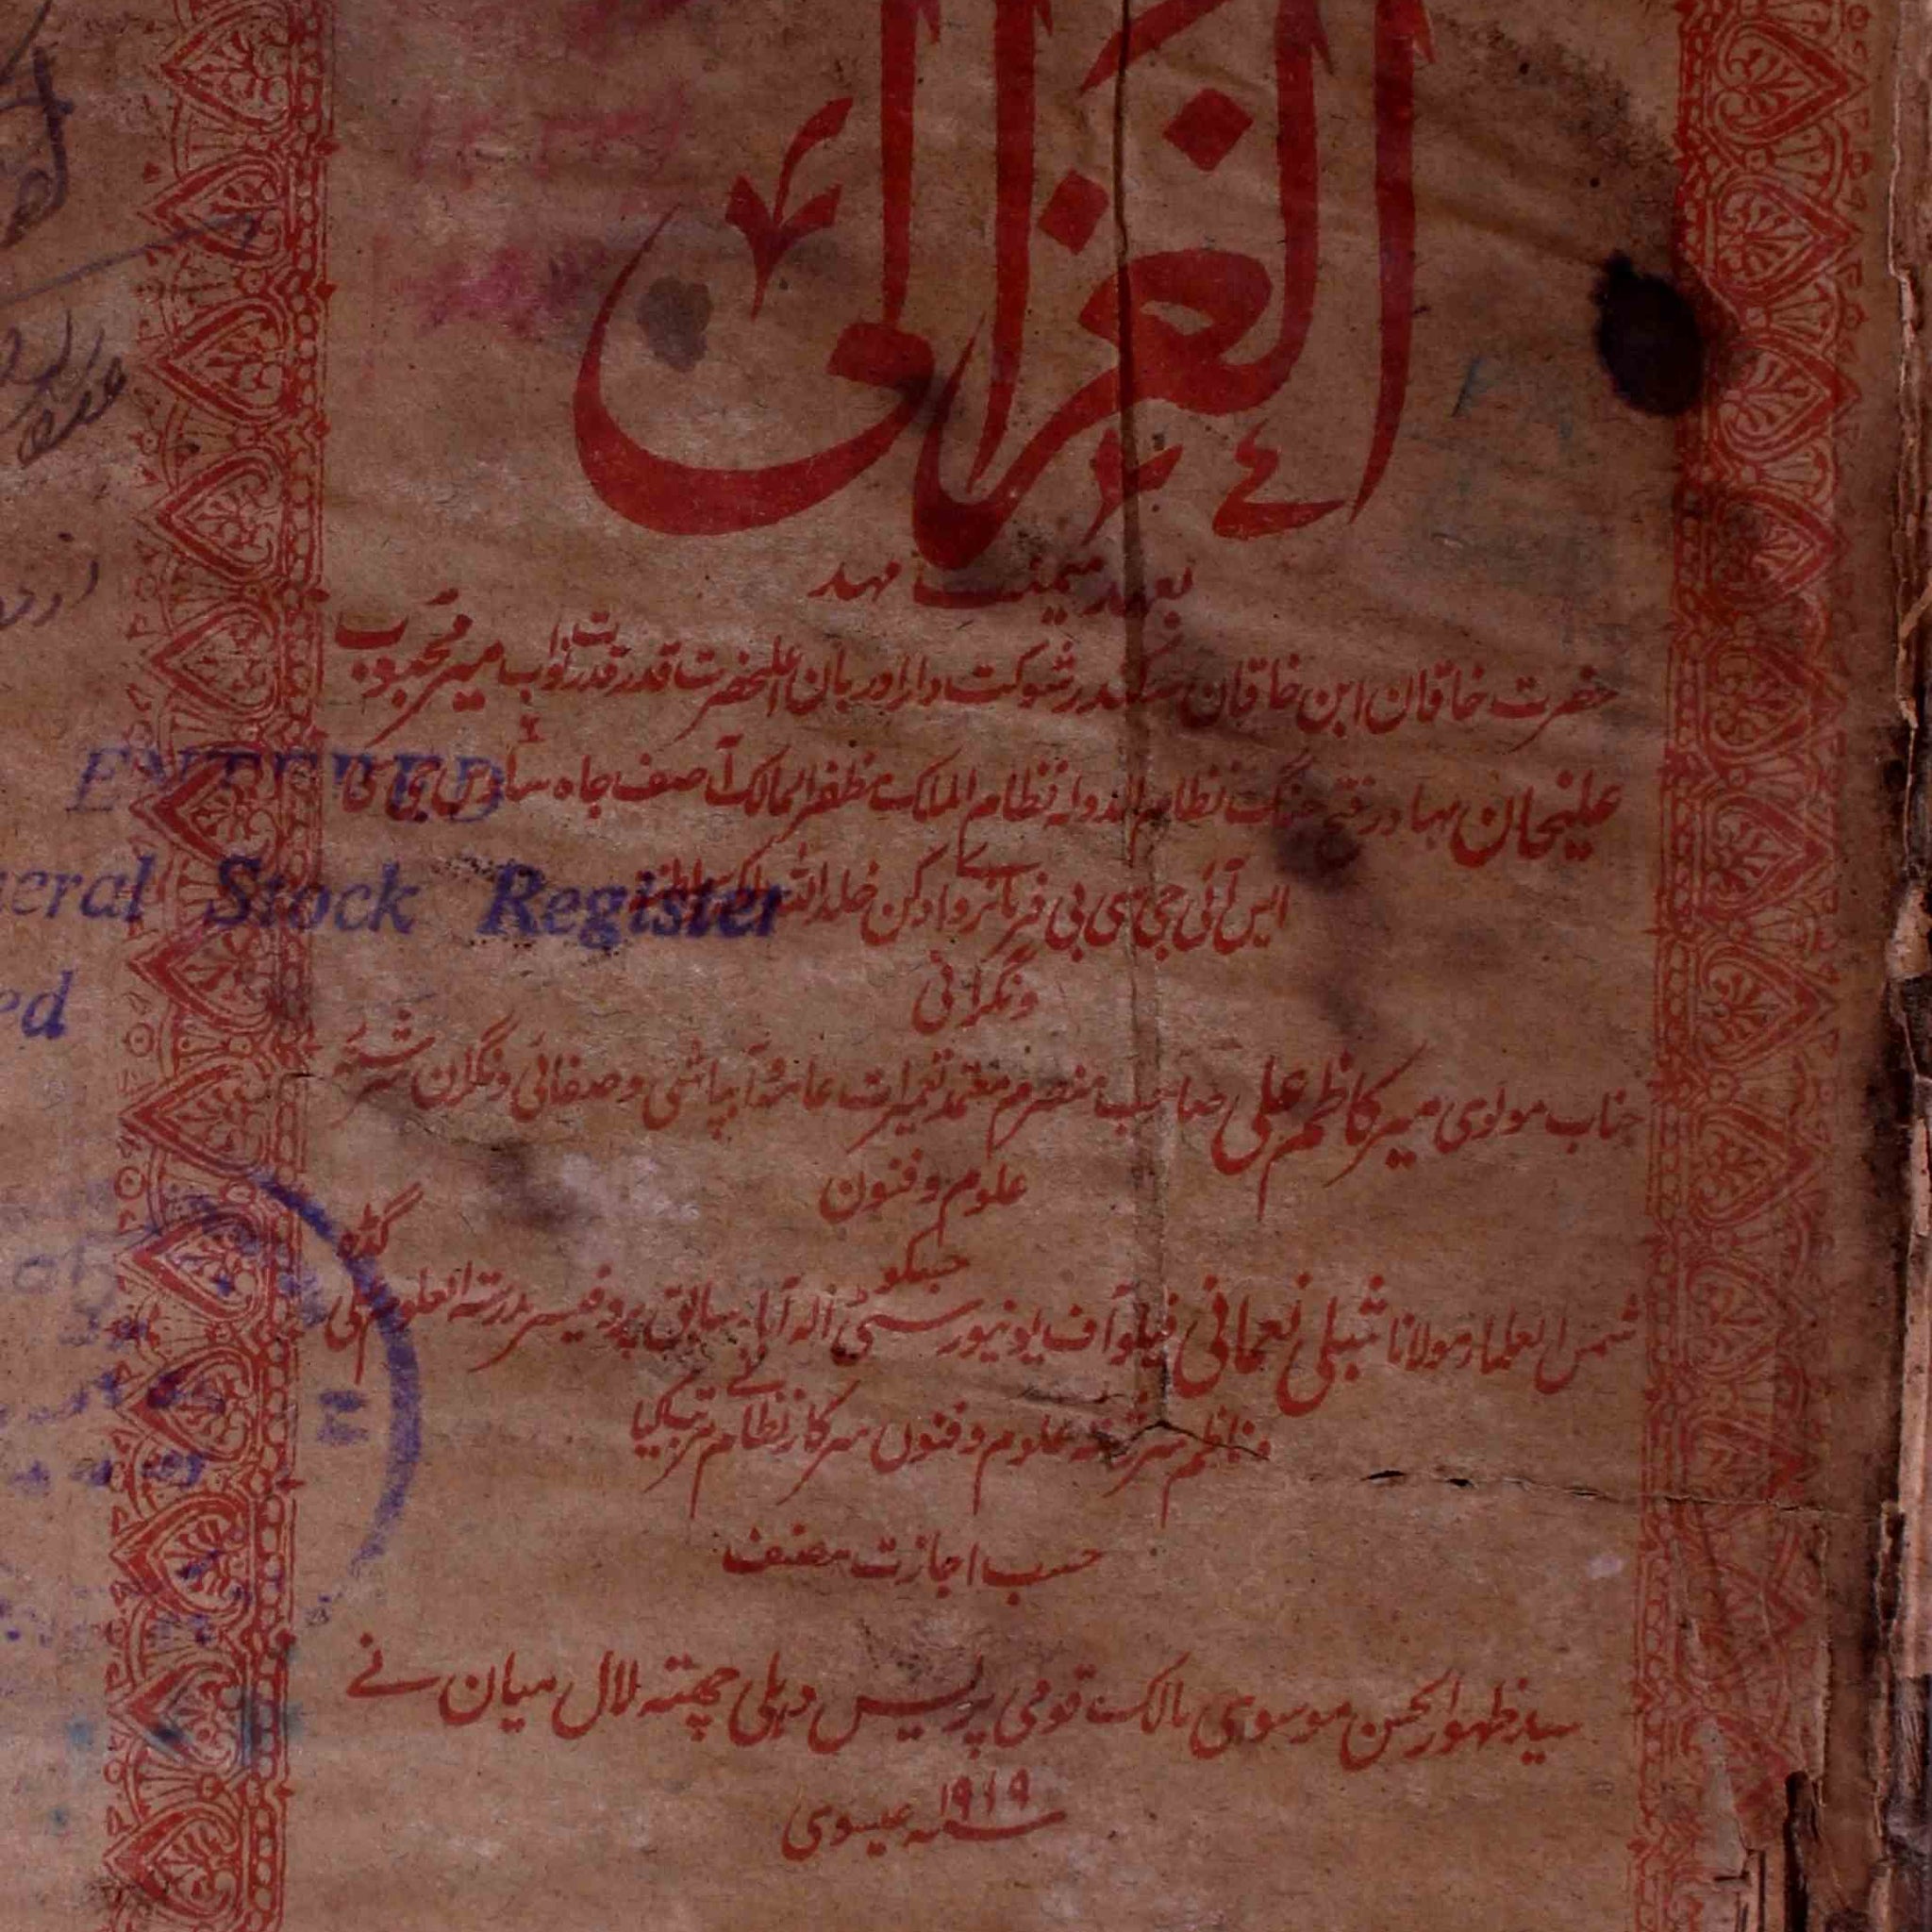 الغزالی
بعہد میمنت مہد
حضرت خاقان ابن خاقان سکندر شوکت دارا دربان اعلیٰحضرت قدر قدرت نواب میر محبوب
علیخان بہادر فتح جنگ نظام الدولہ نظام الملک مظفر الممالک آصف جاہ سادس جی سی
ایس آئی جی سی بی فرمانروائے دکن خلد اللہ ملکہ
و نگرانی
جناب مولوی میر کاظم علی صاحب منصرم معتمد تعمیرات عامہ و آبپاشی و صفائی و نگران سررشتہ
علوم و فنون
جسکو
شمس العلما مولانا شبلی نعمانی فیلو آف یونیورسٹی الہ آباد سابق پروفیسر مدرستہ العلوم علی گڈہ
و ناظم سررشتہ علوم و فنون سرکار نظام نے مرتب کیا
حسب اجازت مصنف
سید ظہور الحسن موسوی مالک قومی پریس دہلی چھتہ لال میان نے
۱۹۱۹
سنہ عیسوی
ENTERED
eral Stock Register
ed